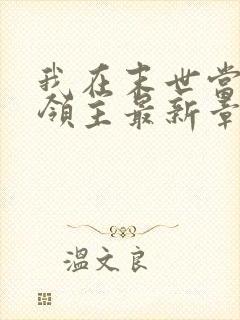 我在末世当
领主最新章
温文良